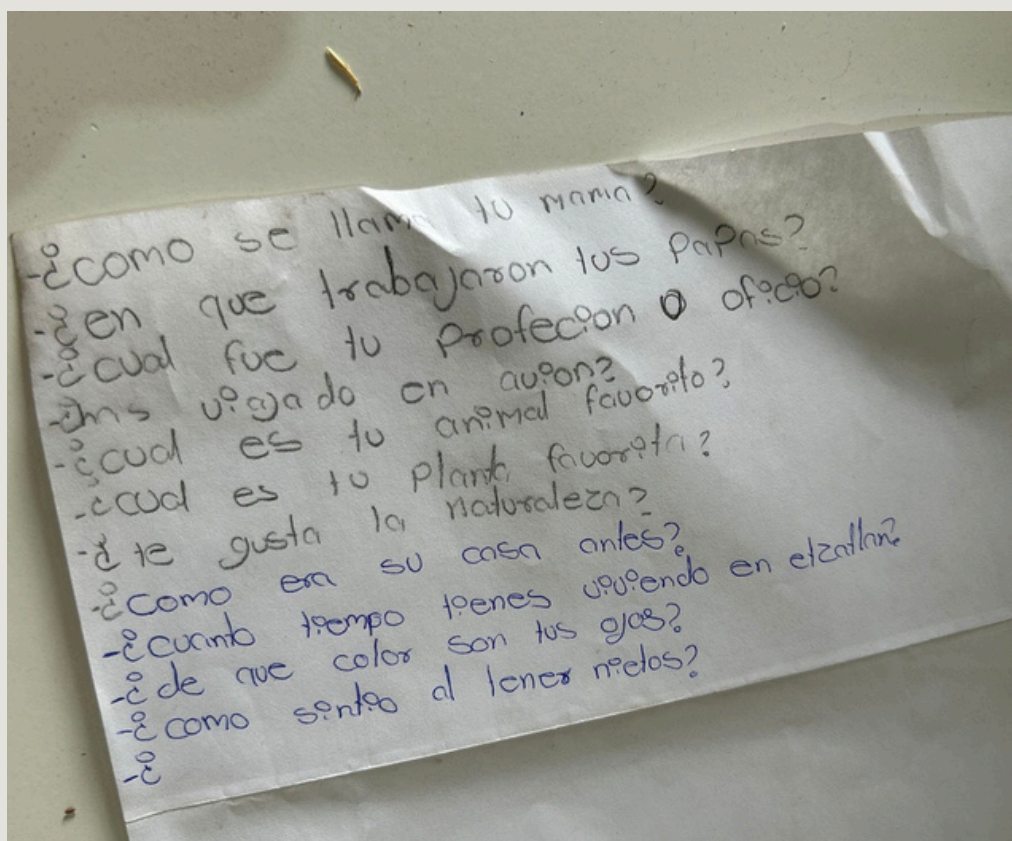 -¿como se llama tu mama?
-¿en que trabajaron tus papas?
-¿cual fue tu profecion o oficio?
-¿as viajado en avion?
-¿cual es tu animal favorito?
-¿cual es tu planta favorita?
-¿te gusta la naturaleza?
-¿como era su casa antes?
-¿cuanto tiempo tienes viviendo en etzatlan?
-¿de que color son tus ojos?
-¿como sintio al tener nietos?
-¿